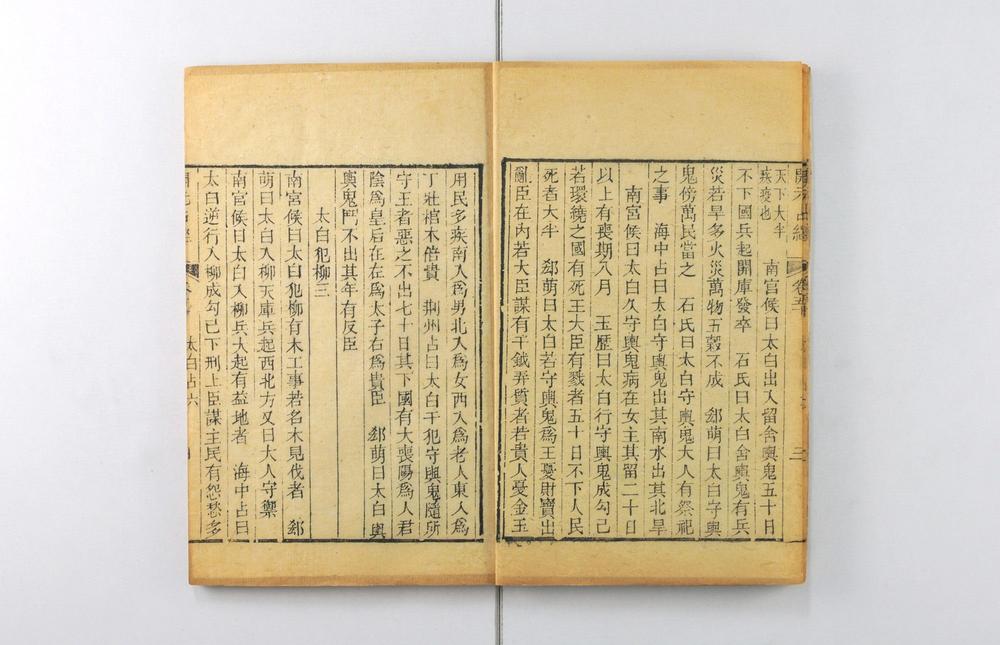 開元占經 卷五十 三
天下大半
疾疫也 南官候曰太白出入留舍輿鬼五十日
不下國兵起開庫發卒 石氏曰太白舍輿鬼有兵
災若旱多火災萬物五穀不成 郄萌曰太白守輿
鬼傍萬民當之 石氏曰太白守輿鬼大人有祭祀
之事 海中占曰太白守輿鬼出其南水出其北旱
南宮候曰太白久守輿鬼病在女主其留二十日
以上有喪期八月 玉歷曰太白行守輿鬼成勾己
若環繞之國有死王大臣有戮者五十日不下人民
死者大半 郄萌曰太白若守輿鬼爲王憂財寶出
亂臣在內若大臣謀有干鉞弄質者若貴人憂金玉
用民多疾南入爲男北入爲女西入爲老人東入爲
丁壯棺木倍貴 荆州占曰太白干犯守輿鬼隨所
守王者惡之不出七十日其下國有大喪陽爲人君
陰爲皇后在在爲太子右爲貴臣 郄萌曰太白輿
輿鬼鬥不出其年有反臣
太白犯柳三
南宮候曰太白犯柳有木工事若名木見伐者 郄
萌曰太白入柳天庫兵起西北方又曰大人守禦
南宮候曰太白入柳兵大起有益地者 海中占曰
太白逆行入柳成勾己下刑上臣謀主民有怨愁多
太白占六